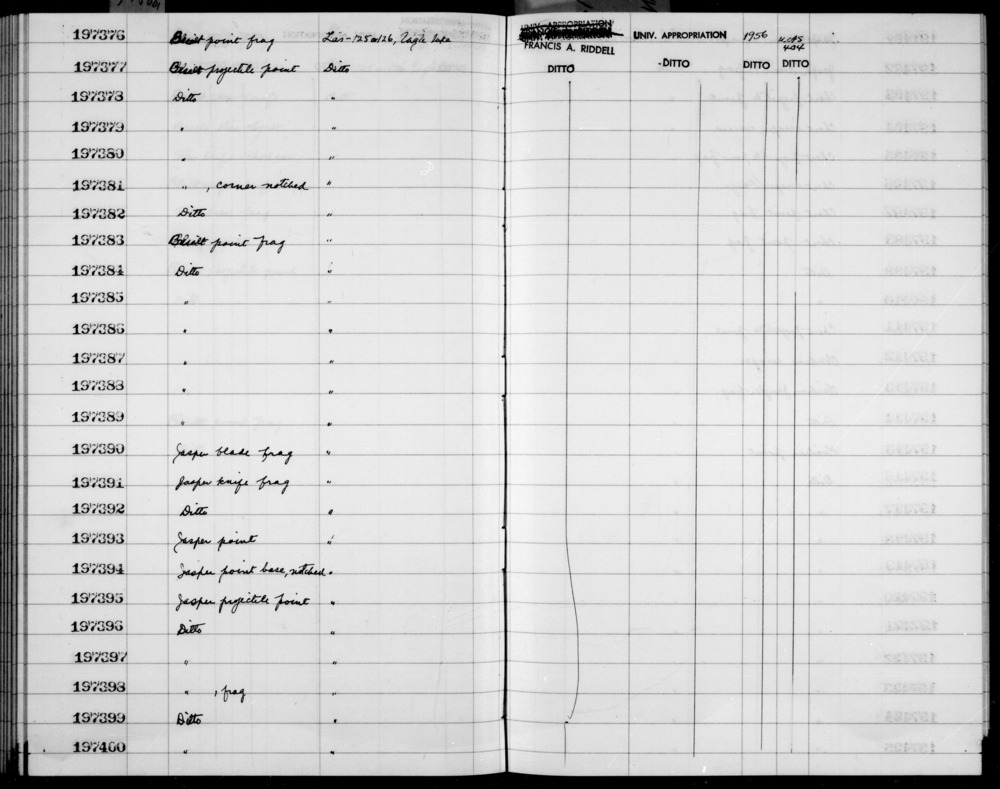 197376 point frag Las-125 or 126, Eagle Lake FRANCIS A. RIDDELL UNIV. APPROPRIATION 1956 UCAS 404
197377 projectile point Ditto DITTO DITTO DITTO DITTO
197378 Ditto "
197379 " "
197380 " "
197381 " , corner notched "
197382 Ditto "
197383 point frag "
197384 Ditto "
197385 " "
197386 " "
197387 " "
197388 " "
197389 " "
197390 Jasper blade frag "
197391 Jasper knife frag "
197392 Ditto "
197393 Jasper point "
197394 Jasper point base, notched "
197395 Jasper projectile point "
197396 Ditto "
197397 " "
197398 " , frag "
197399 Ditto "
197400 " "